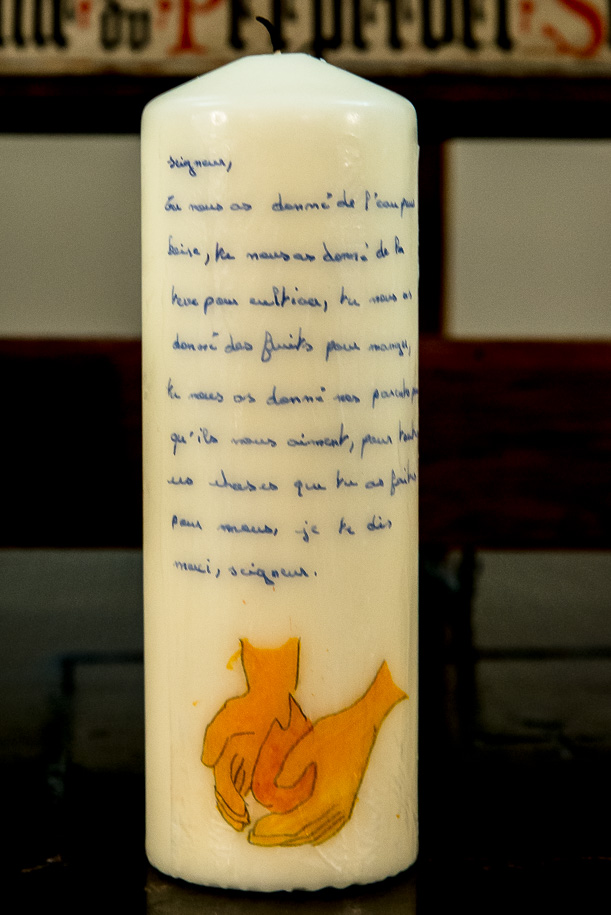 du Perpetuel S
seigneur,
Tu nous as donné de l'eau pour
boire, tu nous as donné de la
terre pour cultiver, tu nous as
donné des fruits pour manger,
tu nous as donné nos parents pour
qu'ils nous aiment, pour toutes
ces choses que tu as faites
pour nous, je te dis
merci, seigneur.